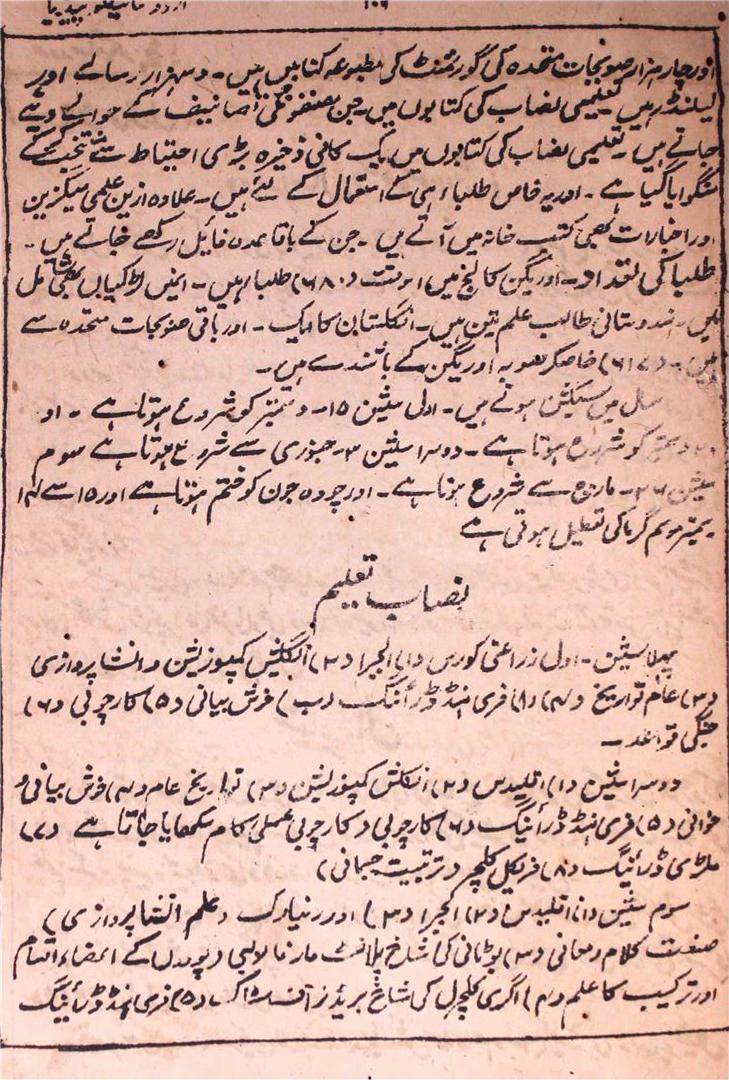 ۱۰۹
اور چار ہزار صوبجات متحدہ کی گورنمنٹ کی مطبوعہ کتابیں ہیں۔ دس ہزار رسالے اور
ہیں تعلیمی نصاب کی کتابوں میں۔ جن تصانیف کے حوالے دیئے
جاتے ہیں۔ تعلیمی نصاب کی کتابوں میں یک کافی ذخیرہ بڑی احتیاط سے منتخب کر کے
منگوایا گیا ہے۔ اور یہ خاص طلباء ہی کے استعمال کے لئے ہیں۔ علاوہ ازین علمی میگزین
اور اخبارات بھی کتب خانہ میں آتے ہیں۔ جن کے باقاعدہ فائیل رکھے جاتے ہیں۔
طلبا کی تعداد۔ اوریگن کالج میں اسوقت (۶۸۰) طلبا ہیں۔ انمیں لڑکیاں بھی شامل
ہیں۔ ہندوستانی طالب علم تین ہیں۔ انگلستان کا ایک۔ اور باقی صوبجات متحدہ سے
ہیں۔ خاصکر صوبہ اوریگن کے باشندے ہیں۔
سال میں سیکشن ہوتے ہیں۔ اول سیشن ۱۵۔ دسمبر کو شروع ہوتا ہے۔ او
۲۰ دسمبر کو شروع ہوتا ہے۔ دوسرا سیشن ۳۔ جنوری سے شروع ہوتا ہے سوم
سیشن ۲۶۔ مارچ سے شروع ہوتا ہے۔ اور چودہ جون کو ختم ہوتا ہے اور ۱۵ سے
موسم گرما کی تعطیل ہوتی ہے
نصاب تعلیم
پہلا سیشن۔ اول زراعتی کورس (۱) الجبرا (۲) انگلش کمپوزیشن و انشا پردازی
(۳) عام تواریخ (۴) (۱) فری ہنڈ ڈرائنگ (ب) خوش بیانی (۵) کارچوبی (۶)
جنگی قواعد۔
دوسرا سیشن (۱) اقلیدس (۲) انگلش کمپوزیشن (۳) تواریخ عام (۴) خوش بیانی و
خوانی (۵) فری ہنڈ ڈرائنگ (۶) کارچوبی (کارچوبی عملی کام سکھایا جاتا ہے (۷)
ملٹری ڈرائنگ (۸) فزیکل کلچر (تربیت جسمانی)
سوم سیشن (۱) اقلیدس (۲) الجبرا (۳) اور رٹیارک (علم انشا پردازی)
صنعت کلام و معانی (۳) بوٹانی کی شاخ پلانٹ مارفالوجی (پودوں کے اعضاء اقسام
اور ترکیب کا علم (۴) اگری کلچرل کی شاخ بریڈز آف سٹاک (۵) فری ہنڈ ڈرائنگ